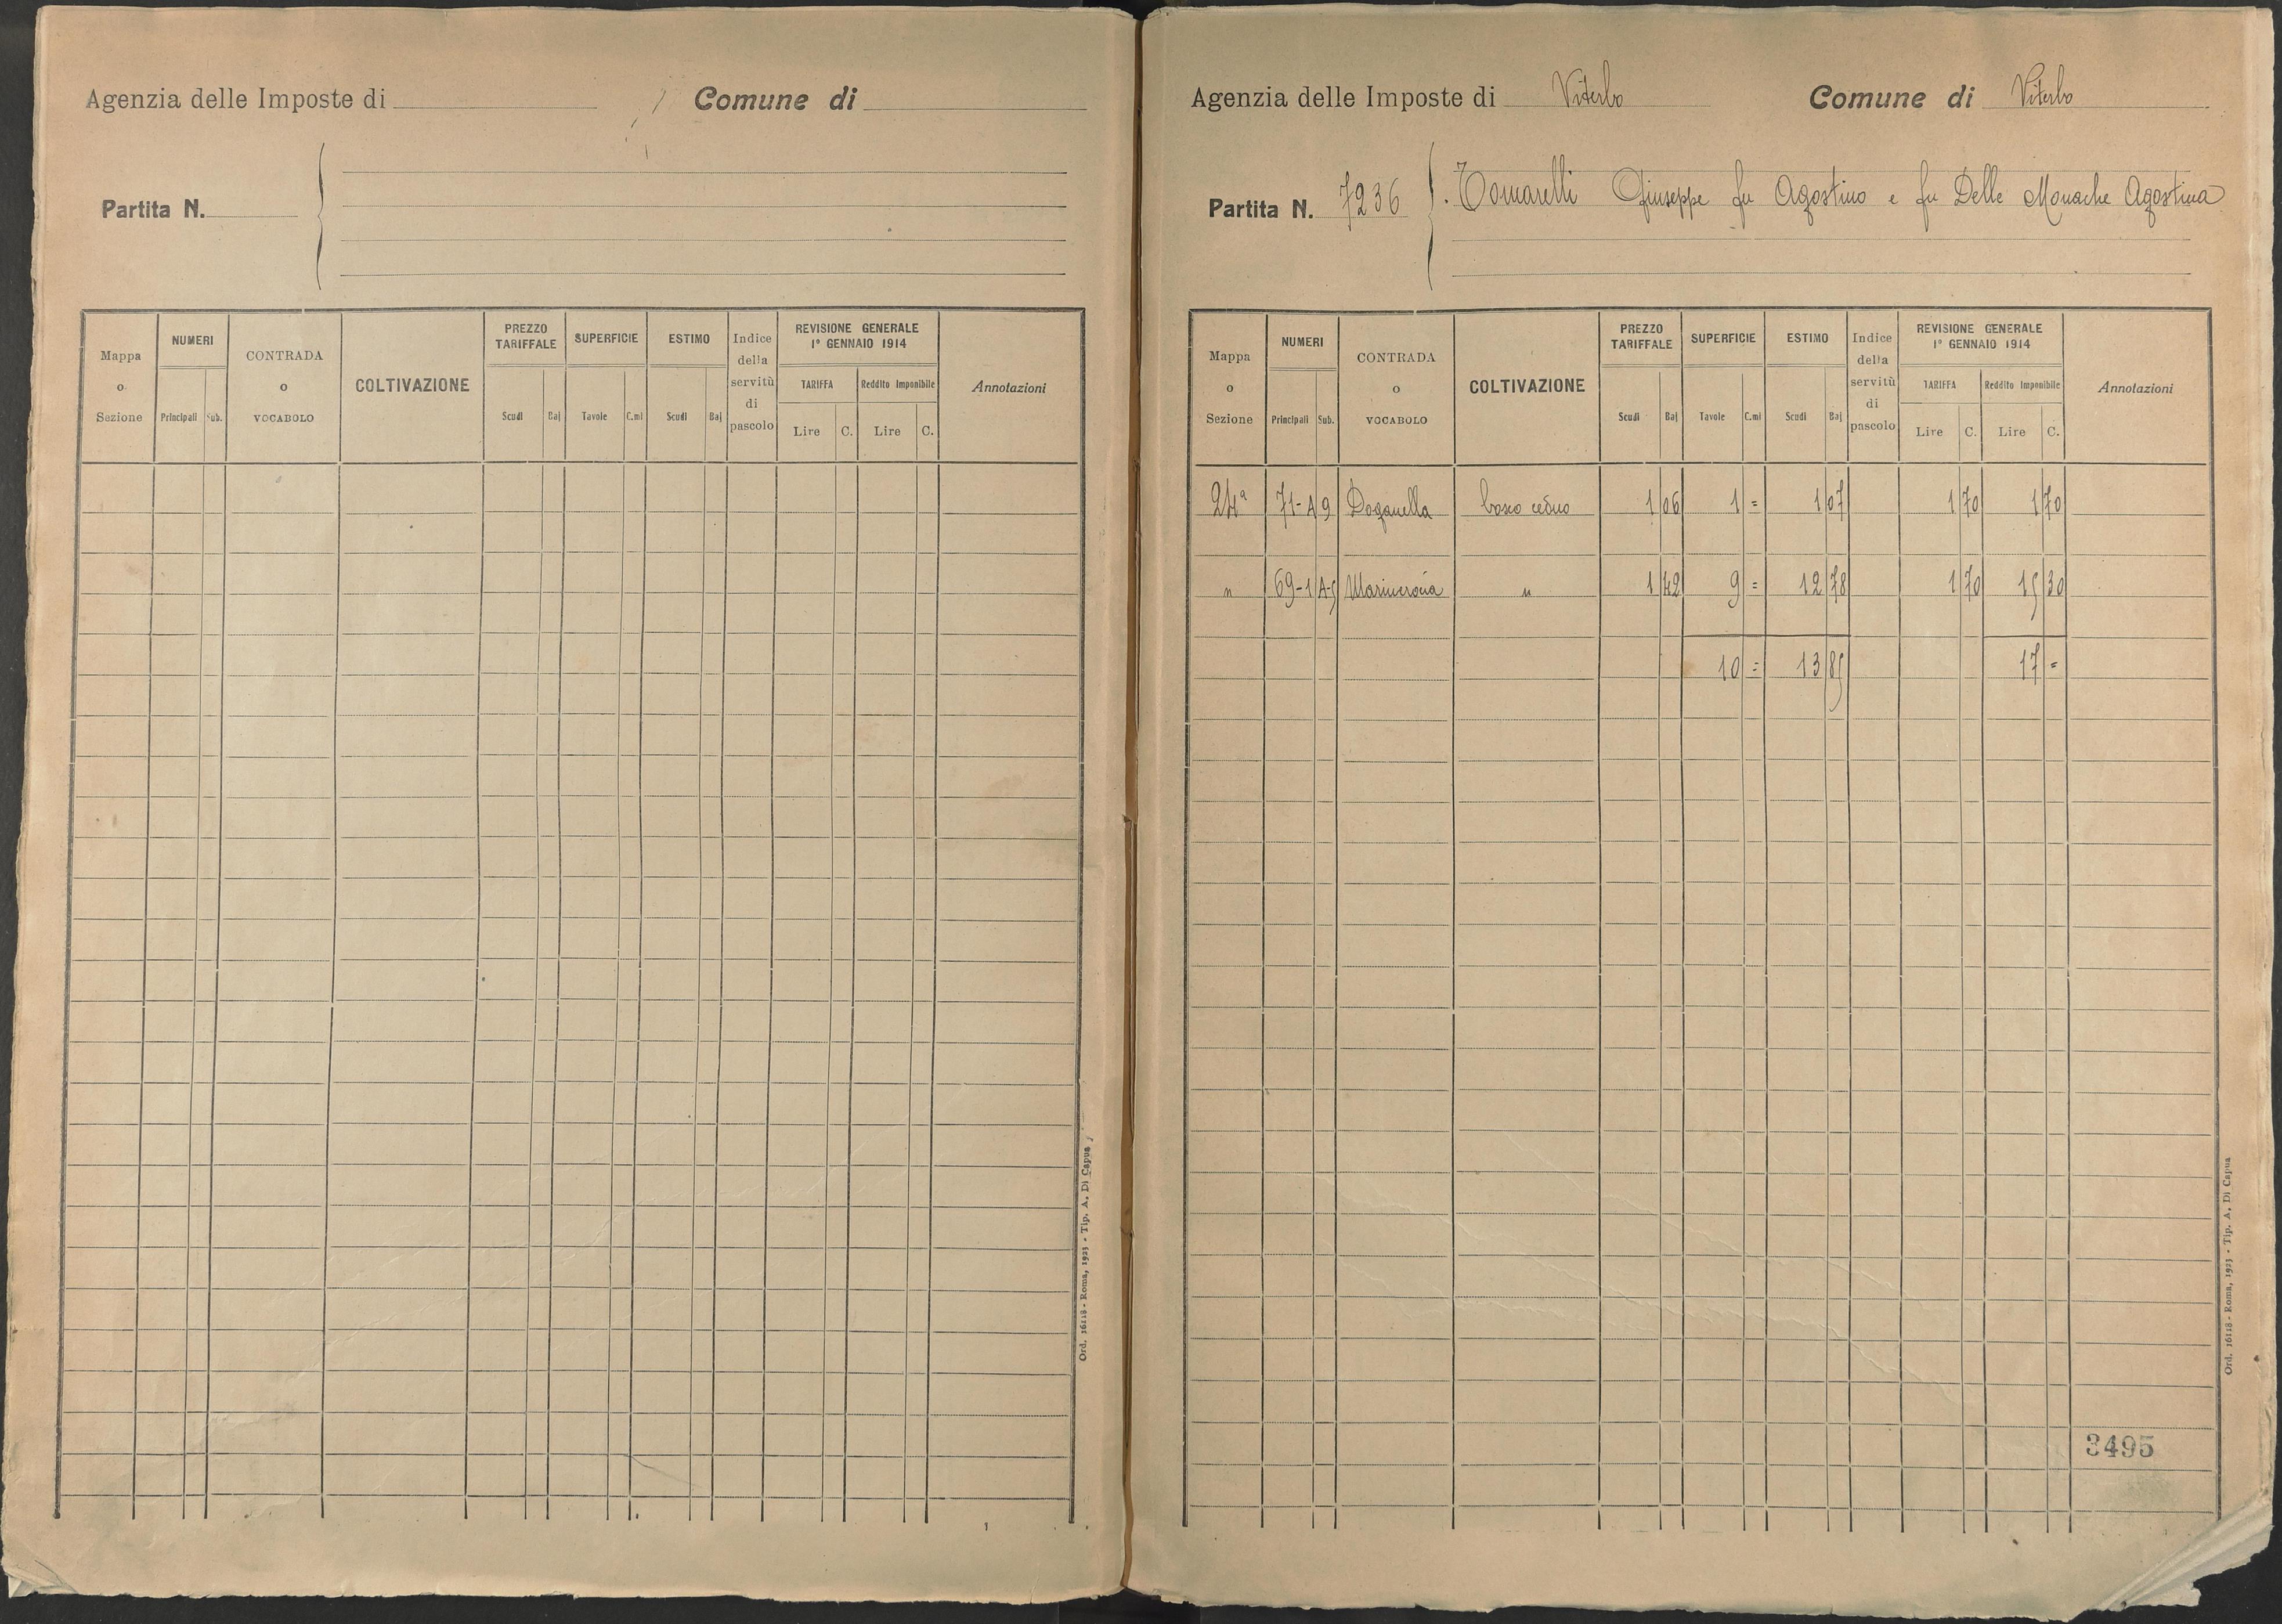 Agenzia delle Imposte di Comune di
Partita N.
Mappa o Sezione NUMERI Principali Sub. CONTRADA o VOCABOLO COLTIVAZIONE PREZZO TARIFFALE Scudi Baj SUPERFICIE Tavole C.mi ESTIMO Scudi Baj Indice della servitù di pascolo REVISIONE GENERALE 1° GENNAIO 1914 TARIFFA Lire C. Reddito Imponibile Lire C. Annotazioni
Ord. 16118 - Roma, 1923 - Tip. A. Di Capua
Agenzia delle Imposte di Viterbo Comune di Viterbo
Partita N. 7236 Tomarelli Giuseppe fu Agostino e fu Delle Monache Agostina
Mappa o Sezione NUMERI Principali Sub. CONTRADA o VOCABOLO COLTIVAZIONE PREZZO TARIFFALE Scudi Baj SUPERFICIE Tavole C.mi ESTIMO Scudi Baj Indice della servitù di pascolo REVISIONE GENERALE 1° GENNAIO 1914 TARIFFA Lire C. Reddito Imponibile Lire C. Annotazioni
24ª 71-A 9 Doganella bosco ceduo 1 06 1 = 1 07 1 70 1 70
" 69-1 A-5 " 1 42 9 = 12 78 1 70 15 30
10 = 13 85 17 =
3495
Ord. 16118 - Roma, 1923 - Tip. A. Di Capua